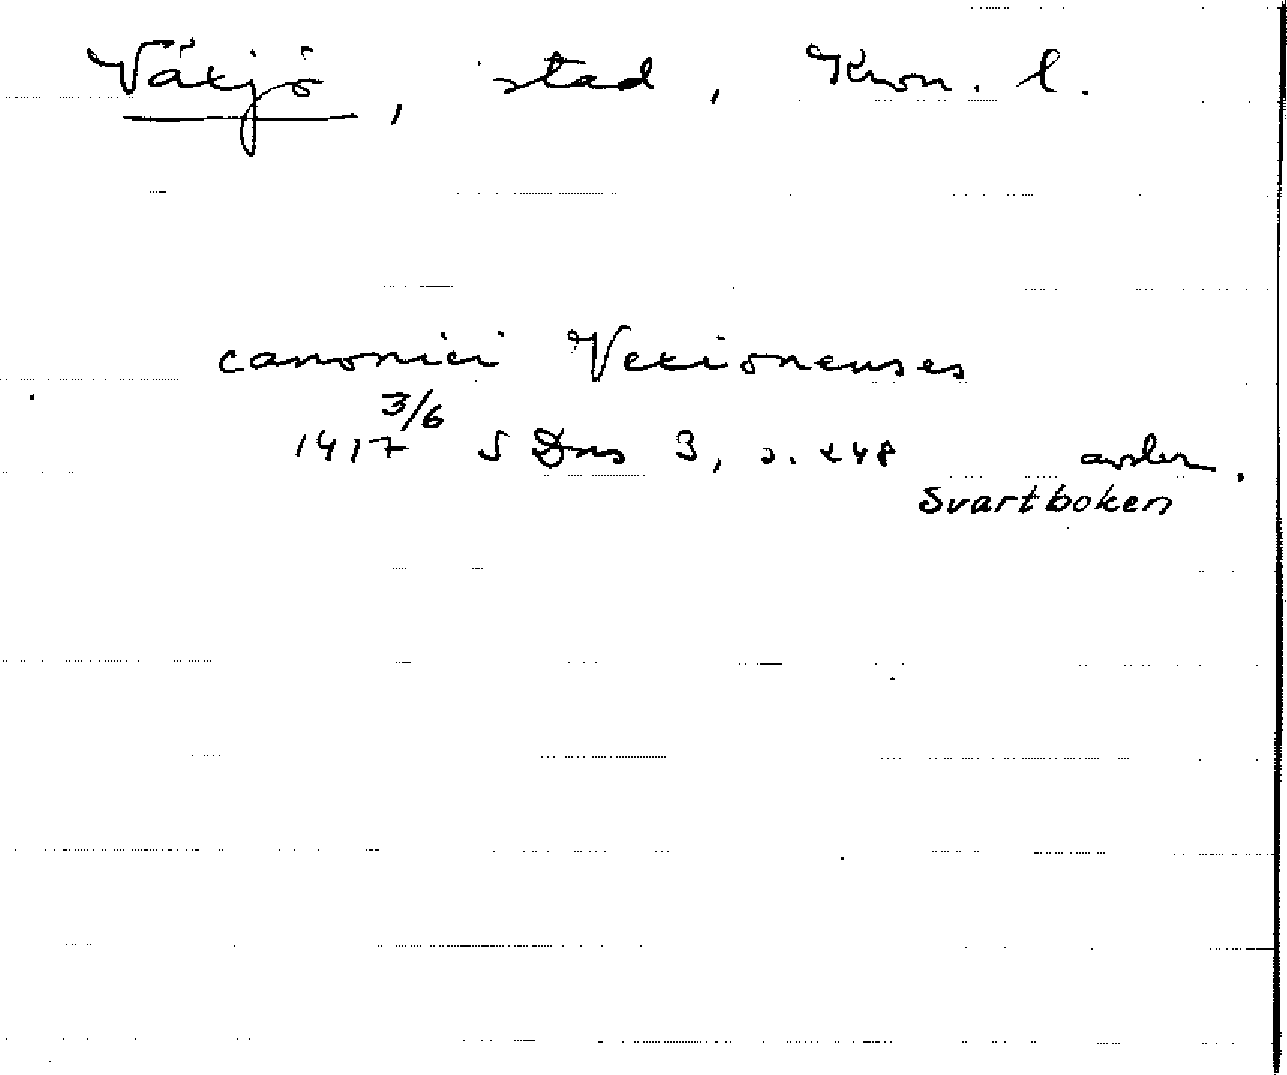 Växjö, stad, Kron. l.
canonici Vexionenses
1417 3/6 S Dns 3, s. 248 avskr.
Svartboken